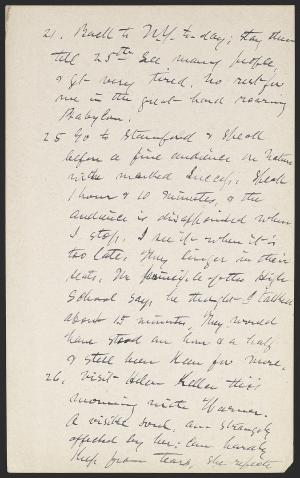 21. Back to N.Y. to-day; stay there
till 25th. See many people
& get very tired. No rest for
me in the great hard roaring
Babylon.
25 Go to Stamford & speak
before a fine audience on Nature
with marked success. Speak
1 hour & 10 minutes, & the
audience is disappointed when
I stop. I see it when it's
too late. They linger in their
seats. The principle of the High
School says, he thought I talked
about 15 minutes. They would
have stood an hour & a half
& still been keen for more.
26. Visit Helen Keller this
morning with Warner.
A visible soul, am strangely
affected by her; can hardly
keep from tears. She repeats